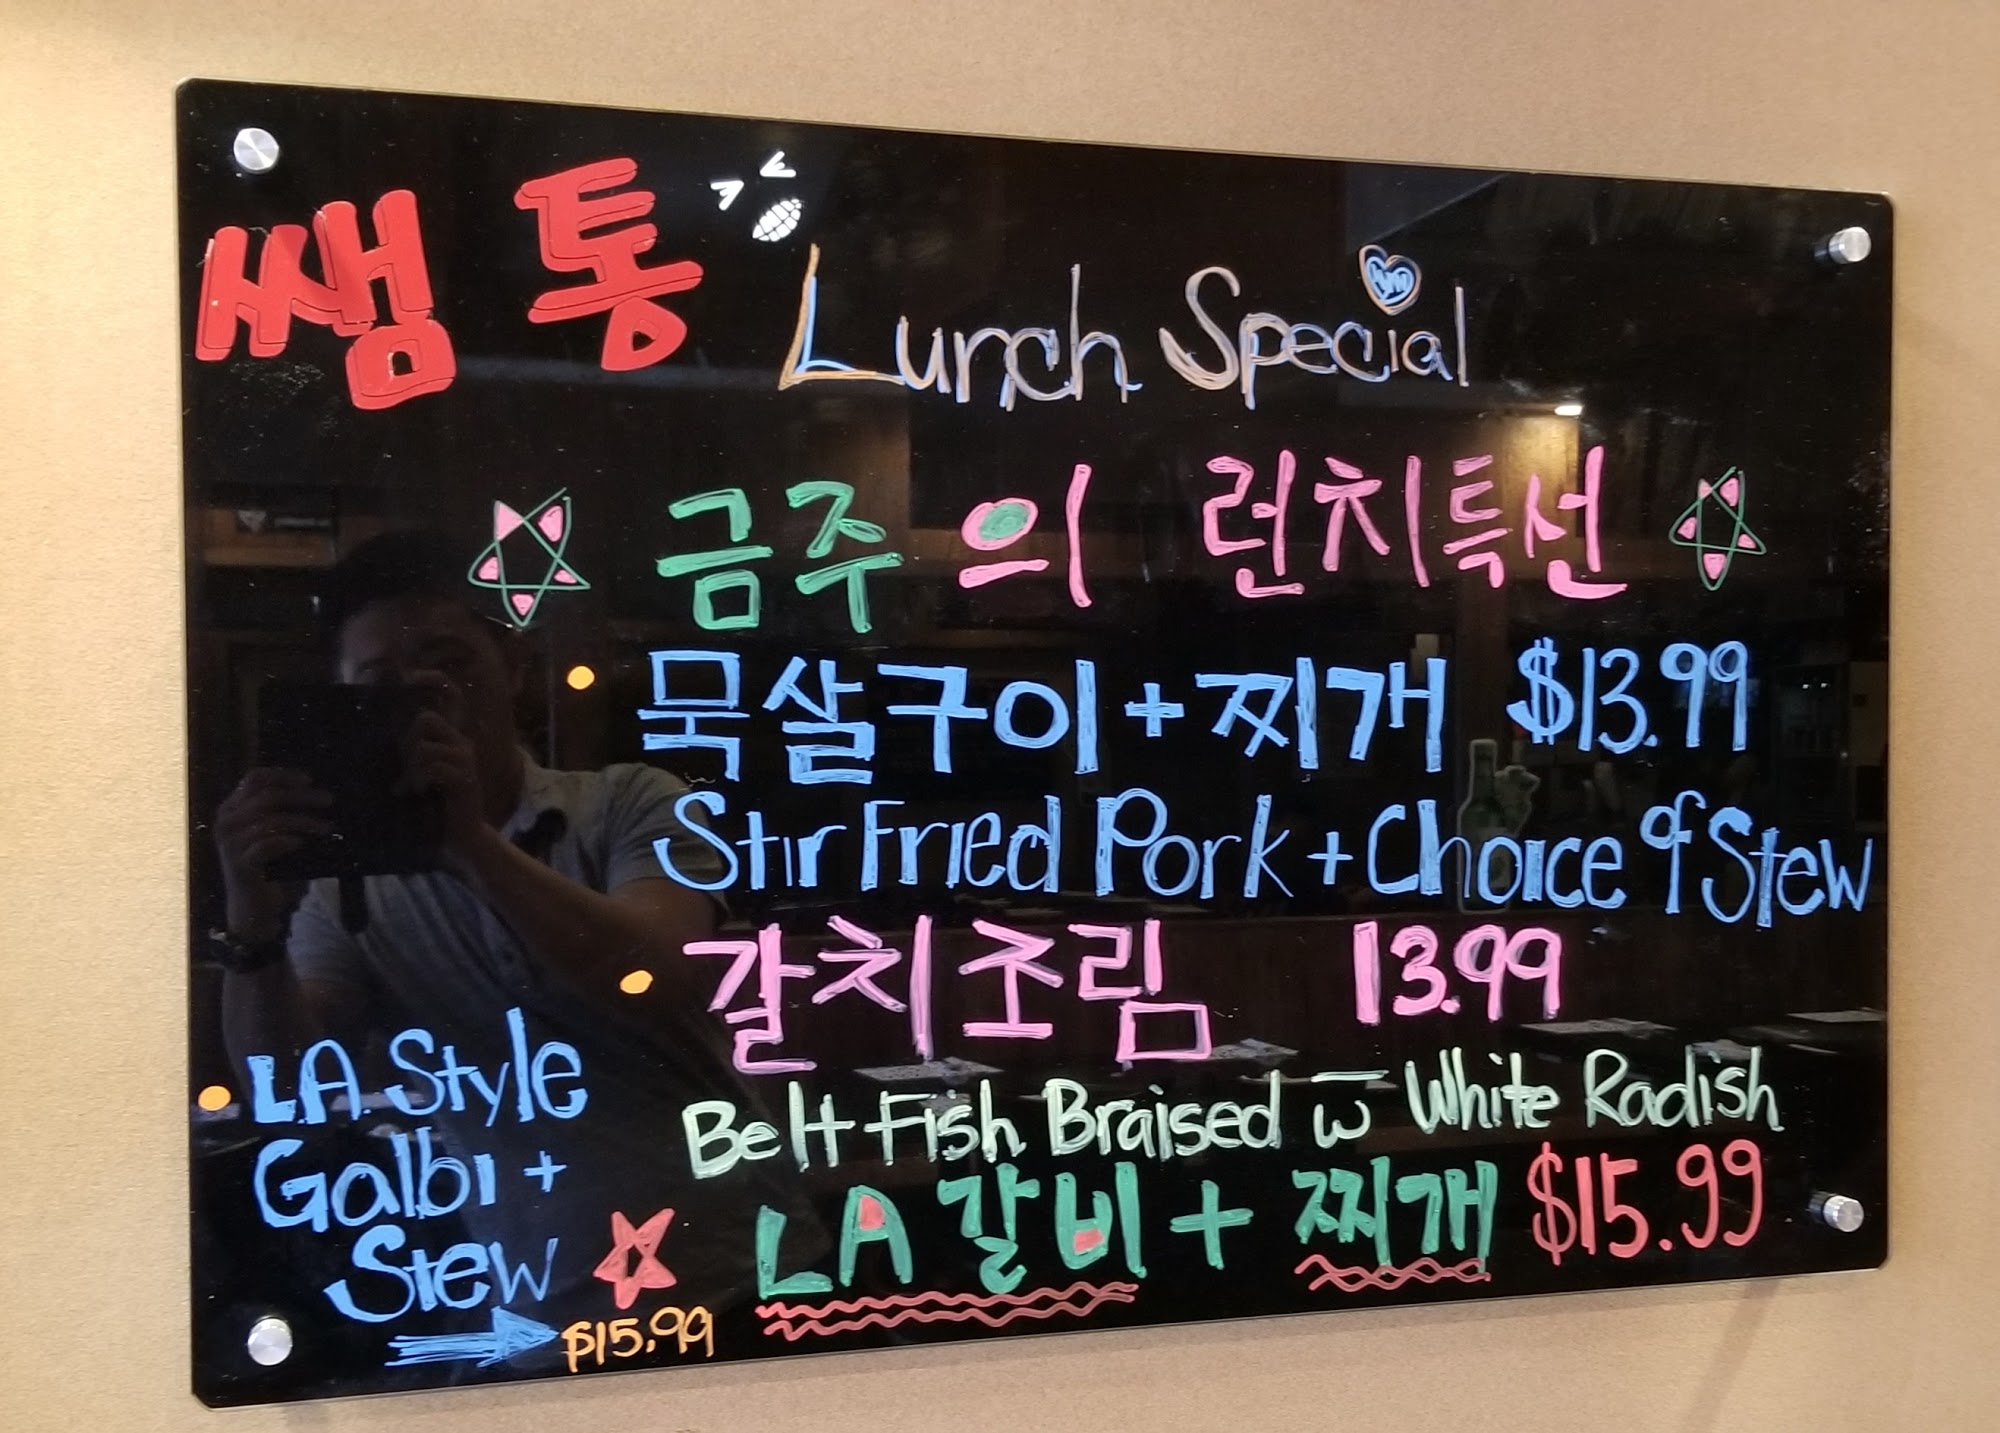 쌤통 Lunch Special
금주의 런치특선
묵살구이+찌개 $13.99
Stir Fried Pork + Choice of Stew
갈치조림 13.99
Belt Fish Braised w̅ White Radish
LA Style
Galbi +
Stew
$15.99
LA갈비+찌개 $15.99